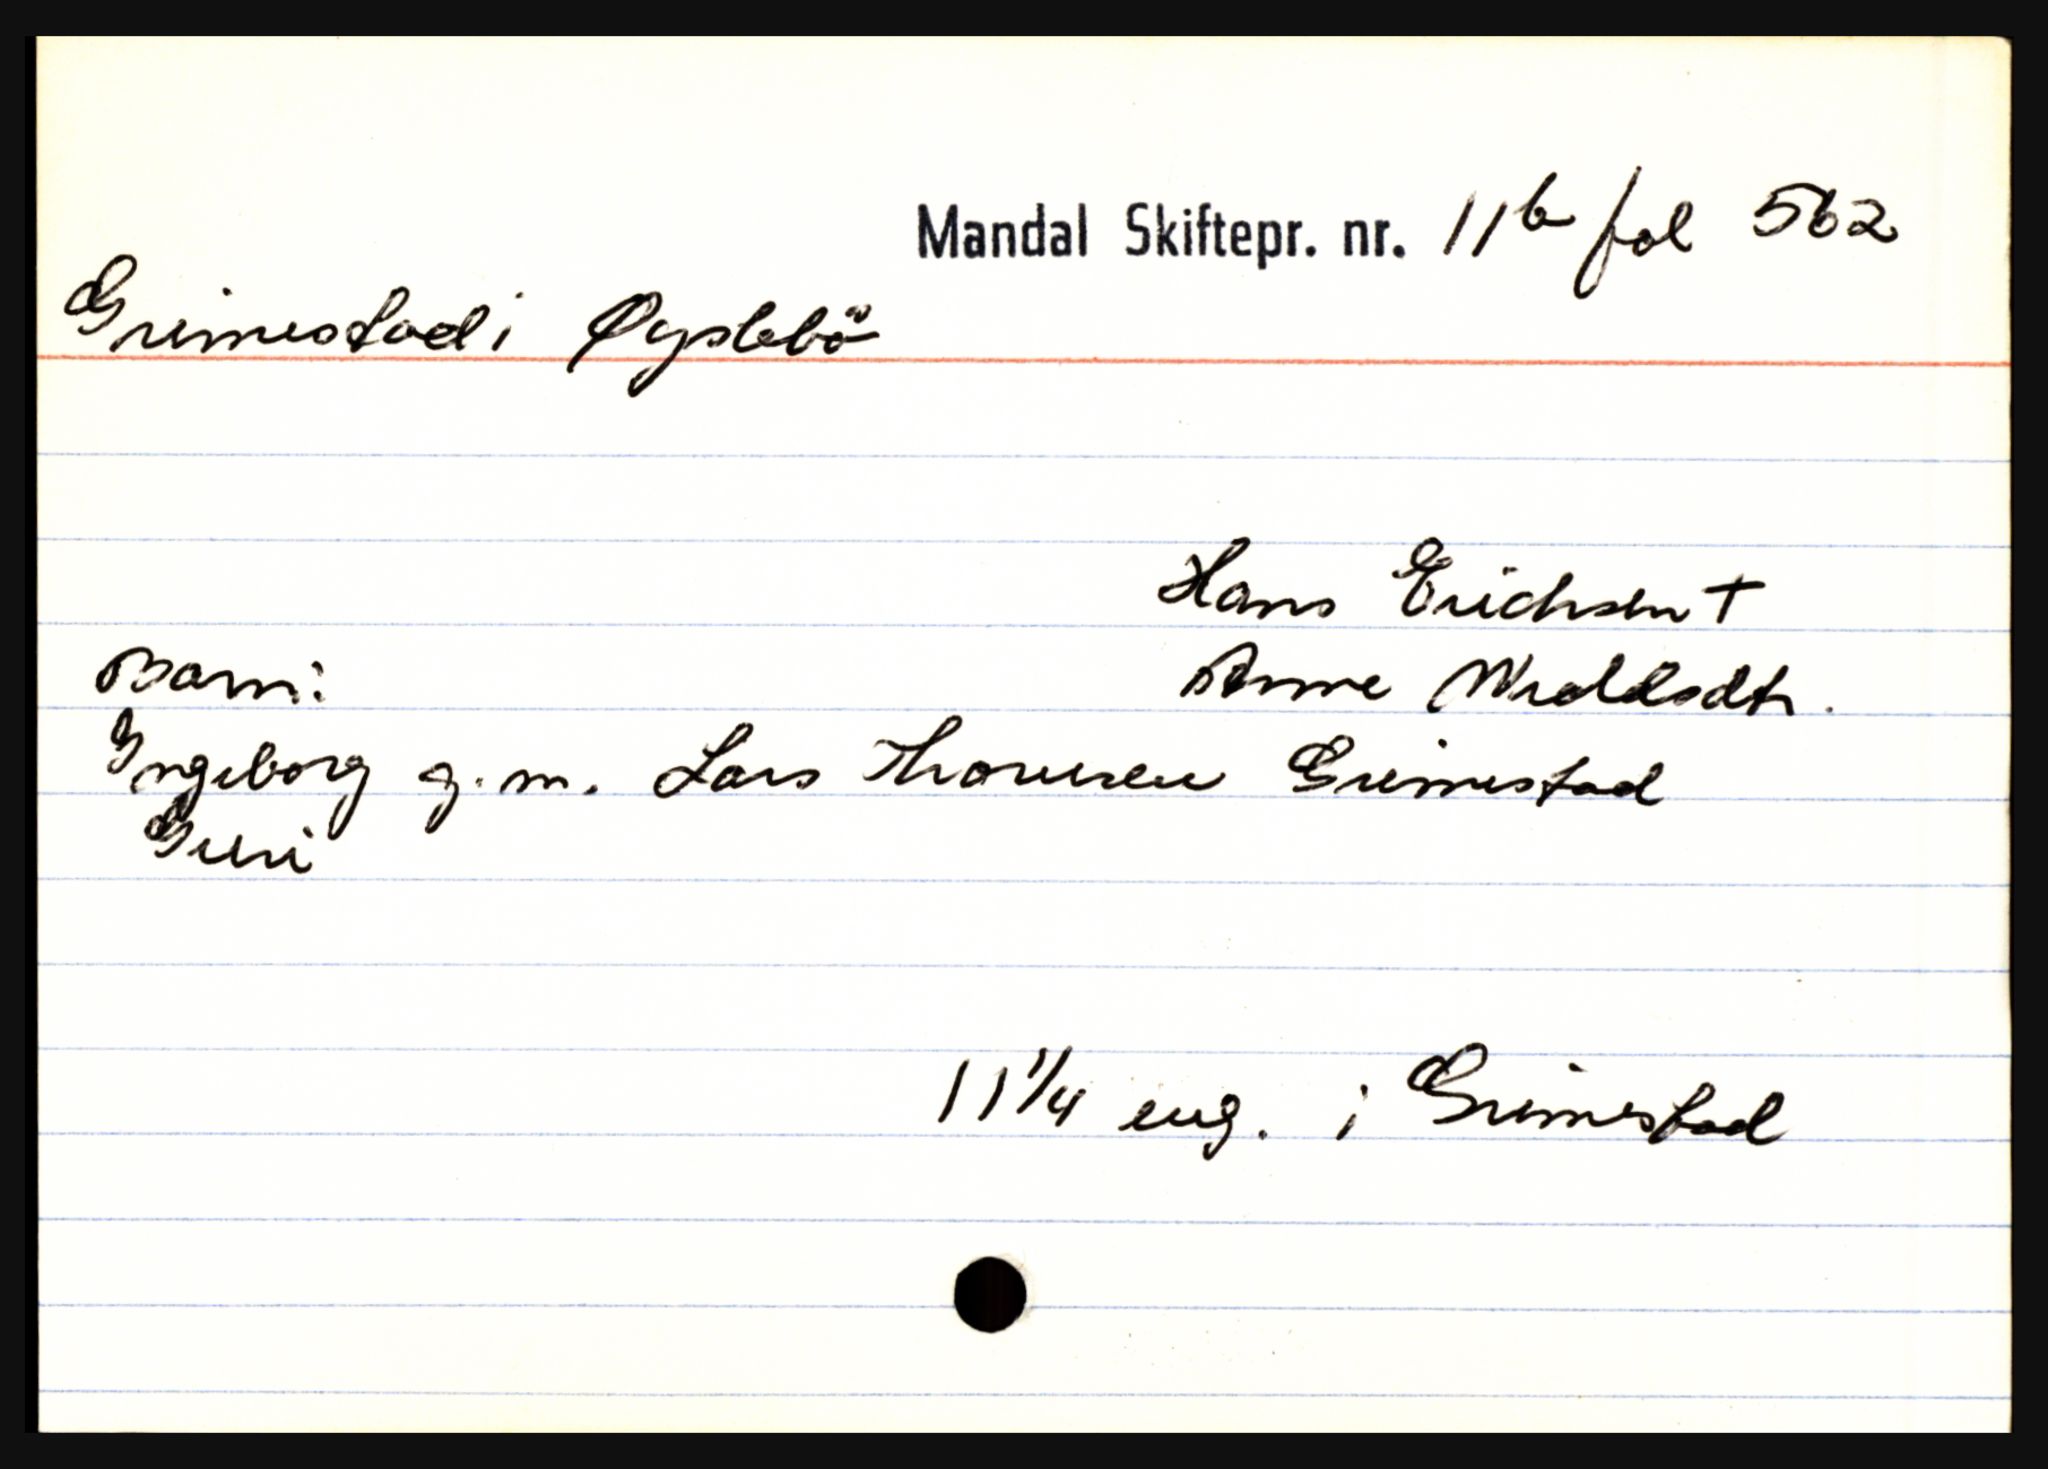 Mandal Skiftepr. nr. 11b fol 562
Grimestad i Øyslebö
Hans Erichsen †
Barn: Anne
Ingeborg g. m. Lars Thomesen Grimestad
Guri
11 1/4 eng. i Grimestad